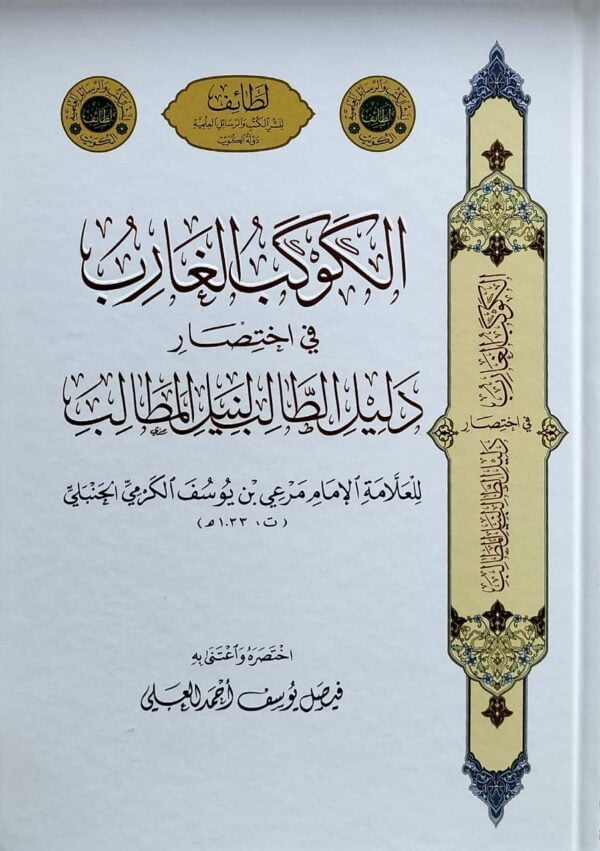 لطائف
لنشر الكتب والرسائل العلمية
دولة الكويت
لنشر الكتب والرسائل العلمية
لطائف
الكويت
لنشر الكتب والرسائل العلمية
لطائف
الكويت
الكَوْكَبُ الغَارِبُ
في اخْتِصَارِ
دَلِيْلِ الطَّالِبِ لِنَيْلِ المَطَالِبِ
لِلعَلَّامَةِ الإِمَامِ مَرْعِي بْنِ يُوسُفَ الكَرْمِيِّ الحَنْبَلِيِّ
(ت، ١٠٣٣ هـ)
اخْتَصَرَهُ وَاعْتَنَى بِهِ
فيصل يُوسف أحمد العَلي
الكَوْكَبُ الغَارِبُ
في اخْتِصَارِ
دَلِيْلِ الطَّالِبِ لِنَيْلِ المَطَالِبِ